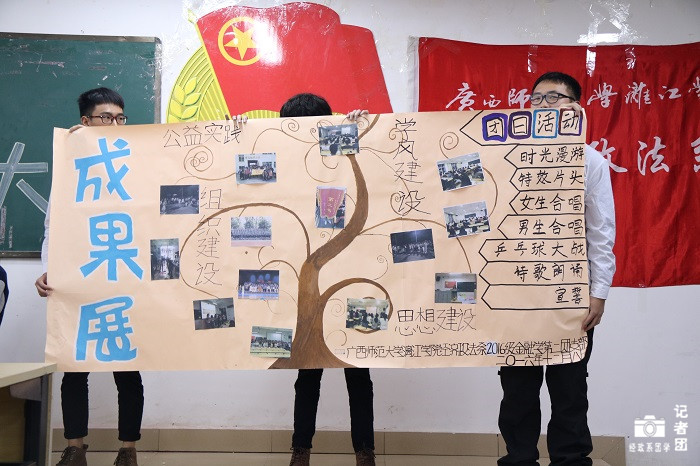 廣西師
学漓江学
政法
大
成果展
公益实践
组织建设
学风建设
思想建设
团日活动
时光漫游
特效片头
女生合唱
男生合唱
乒乓球大战
诗歌朗诵
宣誓
广西师范大学漓江学院经济政法系2016级金融学第二团支部
二〇一六年十二月八
记者团
经政系团学